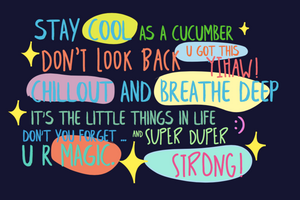 STAY COOL AS A CUCUMBER
DON'T LOOK BACK U GOT THIS
YIHAW!
CHILLOUT AND BREATHE DEEP
IT'S THE LITTLE THINGS IN LIFE :)
DON'T YOU FORGET ... AND SUPER DUPER
U R MAGIC. STRONG!